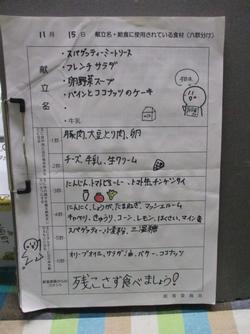 11月 15日 献立名・給食に使用されている食材（六群分け）
献立名
・スパゲッティーミートソース
・フレンチサラダ
・卵野菜スープ
・パインとココナッツのケーキ
・牛乳
1群
豚肉、大豆、とり肉、卵
2群
チーズ、牛乳、生クリーム
3群
にんじん、トマトピューレー、トマト缶、チンゲンサイ
4群
にんにく、しょうが、たまねぎ、マッシュルーム
キャベツ、きゅうり、コーン、レモン、はくさい、パイン缶
5群
スパゲッティ、小麦粉、三温糖
6群
オリーブオイル、サラダ油、バター、ココナッツ
残さず食べましょう!
給食委員会